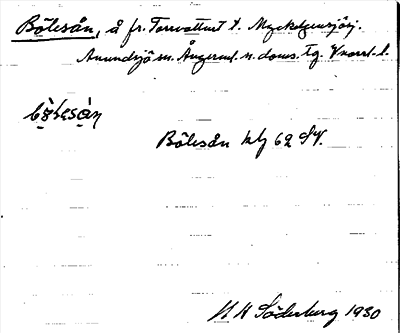 Bölesån, å fr. Torrvattnet t. Myckelgensjösj.
Anundsjö sn. Ångerml. n. doms. tg. Vnorrl. l.
Bölesån kbl 62 SV.
H H Söderberg 1930